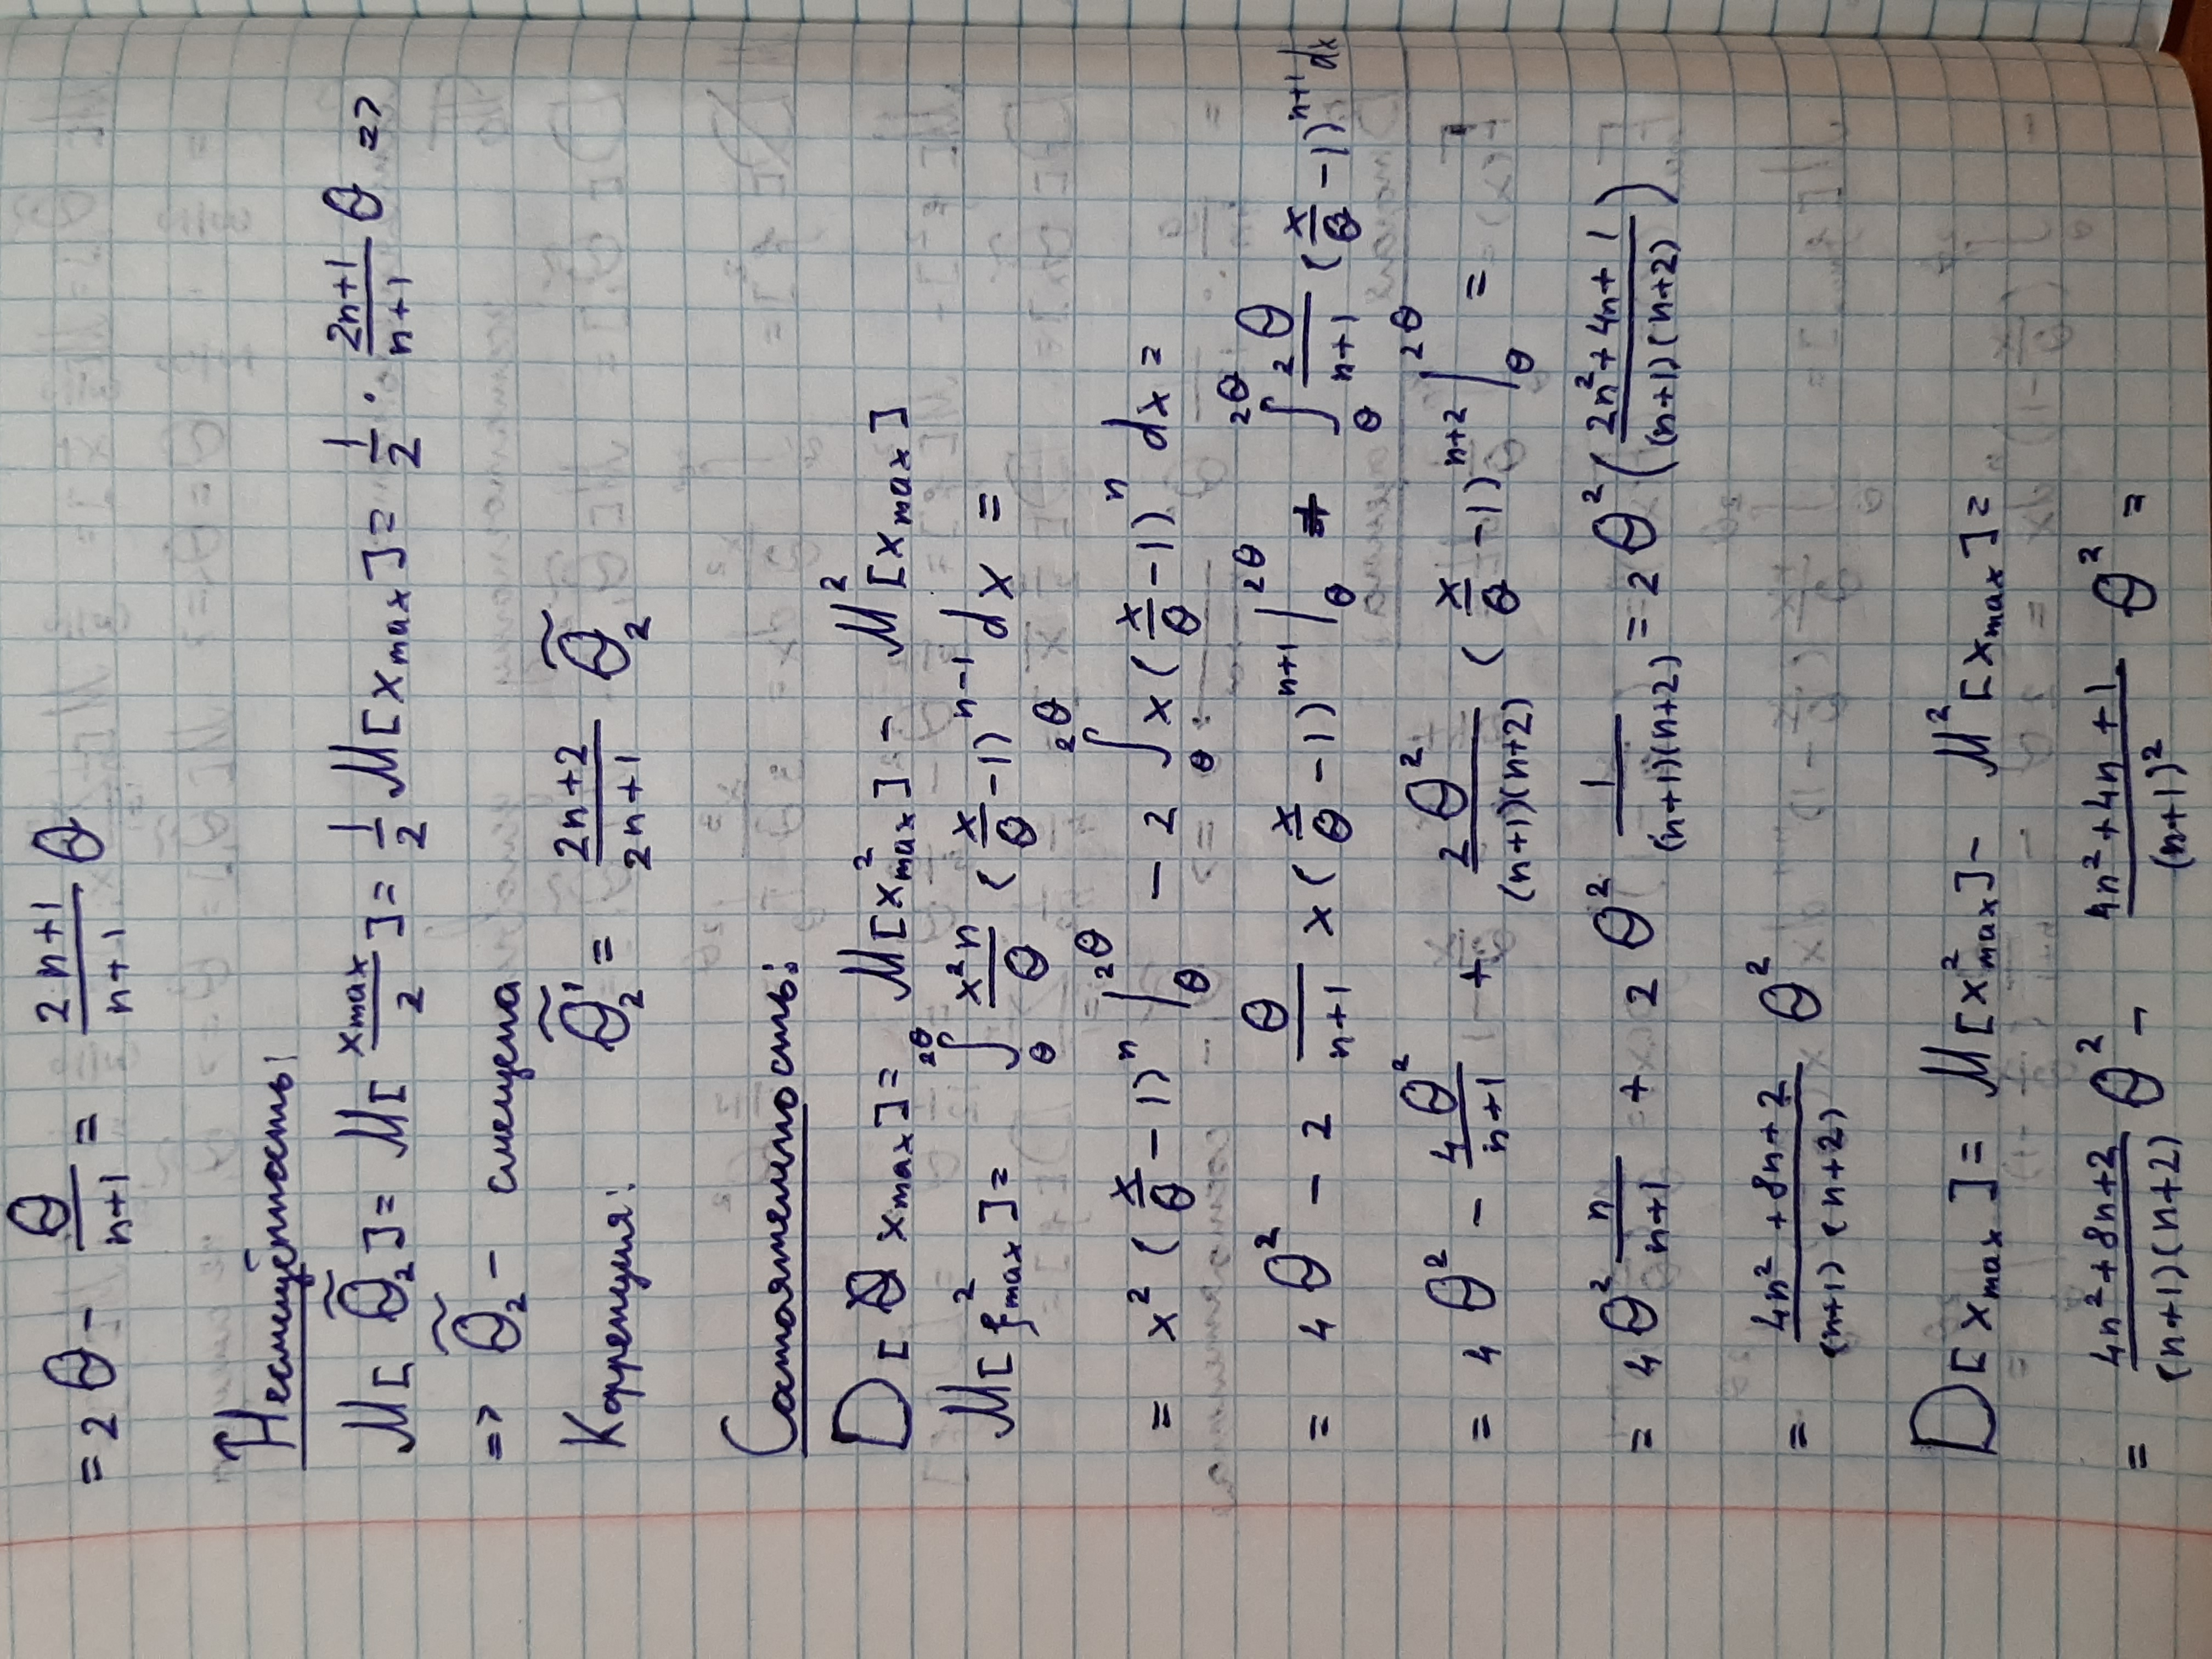 = 2θ − θ/(n+1) = (2n+1)/(n+1) θ
Несмещённость:
M[θ̃₂] = M[x_max/2] = 1/2 M[x_max] = 1/2 · (2n+1)/(n+1) θ =>
=> θ̃₂ − смещена
Коррекция: θ̃₂' = (2n+2)/(2n+1) θ̃₂
Состоятельность:
D[x_max] = M[x²_max] − M²[x_max]
M[ξ²_max] = ∫_θ^{2θ} (x²n)/θ (x/θ −1)^{n−1} dx =
= x² (x/θ −1)^n |_θ^{2θ} − 2 ∫_θ^{2θ} x (x/θ −1)^n dx =
= 4θ² − 2 θ/(n+1) x (x/θ −1)^{n+1} |_θ^{2θ} + ∫_θ^{2θ} 2θ/(n+1) (x/θ −1)^{n+1} dx
= 4θ² − 4θ²/(n+1) + 2θ²/((n+1)(n+2)) (x/θ −1)^{n+2} |_θ^{2θ} =
= 4θ² n/(n+1) + 2θ² 1/((n+1)(n+2)) = 2θ² ((2n²+4n+1)/((n+1)(n+2)))
= (4n²+8n+2)/((n+1)(n+2)) θ²
D[x_max] = M[x²_max] − M²[x_max] =
= (4n²+8n+2)/((n+1)(n+2)) θ² − (4n²+4n+1)/(n+1)² θ² =